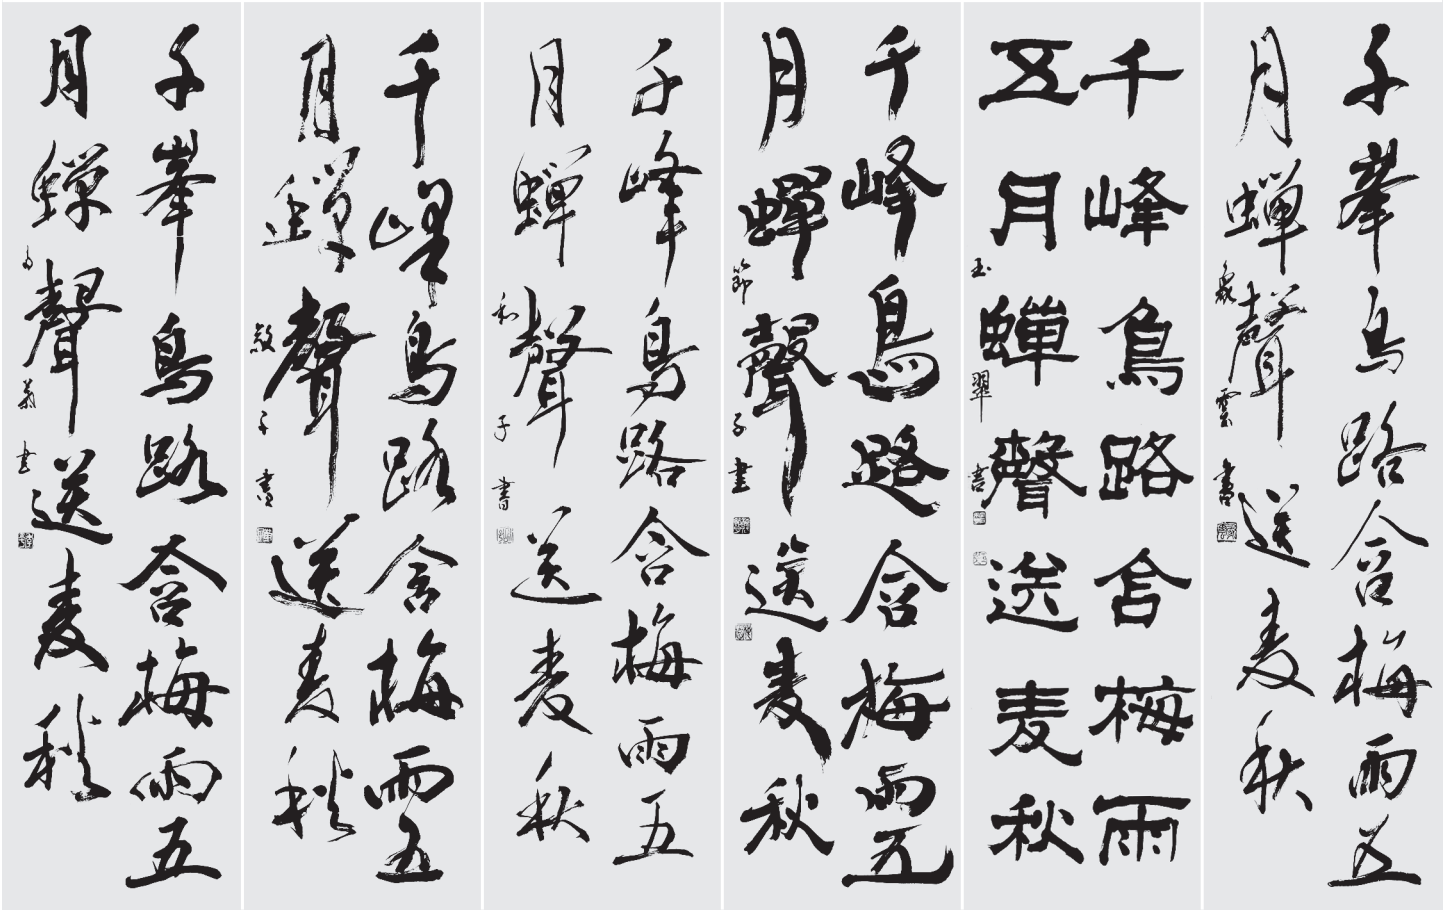 千峯鳥路含梅雨五
月蟬聲送麦秋
雲書
千峰鳥路含梅雨
五月蟬聲送麦秋
玉翠書
千峰鳥路含梅雨五
月蟬聲送麦秋
節子書
千峰鳥路含梅雨五
月蟬聲送麦秋
和子書
千峰鳥路含梅雨五
月蟬聲送麦秋
子書
千峯鳥路含梅雨五
月蟬聲送麦秋
書